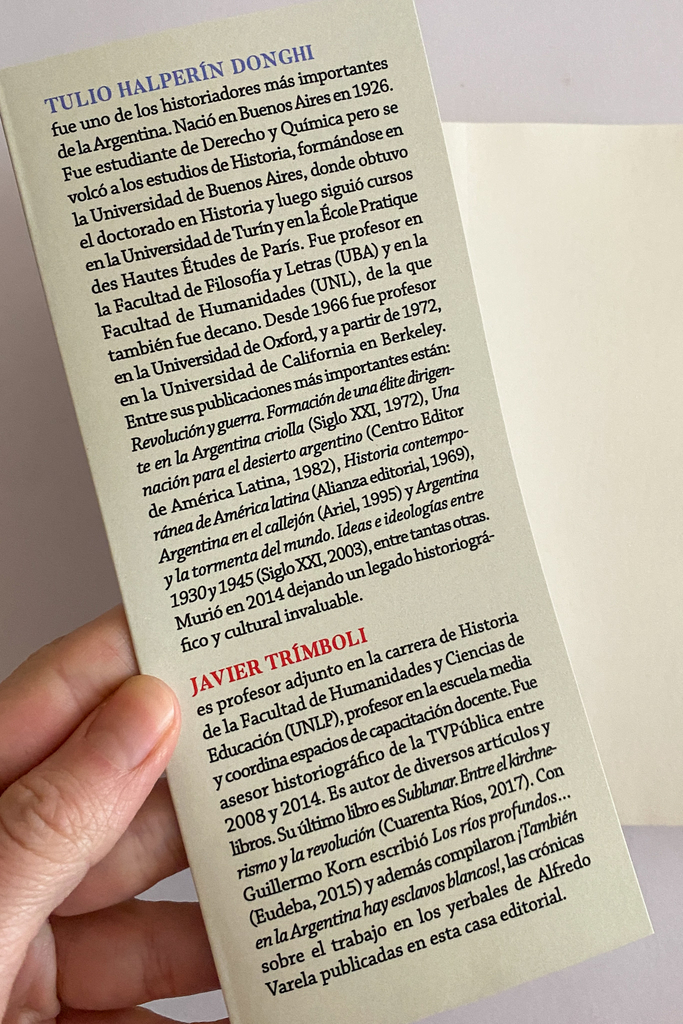 TULIO HALPERÍN DONGHI
fue uno de los historiadores más importantes
de la Argentina. Nació en Buenos Aires en 1926.
Fue estudiante de Derecho y Química pero se
volcó a los estudios de Historia, formándose en
la Universidad de Buenos Aires, donde obtuvo
el doctorado en Historia y luego siguió cursos
en la Universidad de Turín y en la École Pratique
des Hautes Études de París. Fue profesor en
la Facultad de Filosofía y Letras (UBA) y en la
Facultad de Humanidades (UNL), de la que
también fue decano. Desde 1966 fue profesor
en la Universidad de Oxford, y a partir de 1972,
en la Universidad de California en Berkeley.
Entre sus publicaciones más importantes están:
Revolución y guerra. Formación de una élite dirigen-
te en la Argentina criolla (Siglo XXI, 1972), Una
nación para el desierto argentino (Centro Editor
de América Latina, 1982), Historia contempo-
ránea de América latina (Alianza editorial, 1969),
Argentina en el callejón (Ariel, 1995) y Argentina
y la tormenta del mundo. Ideas e ideologías entre
1930 y 1945 (Siglo XXI, 2003), entre tantas otras.
Murió en 2014 dejando un legado historiográ-
fico y cultural invaluable.
JAVIER TRÍMBOLI
es profesor adjunto en la carrera de Historia
de la Facultad de Humanidades y Ciencias de
Educación (UNLP), profesor en la escuela media
y coordina espacios de capacitación docente. Fue
asesor historiográfico de la TVPública entre
2008 y 2014. Es autor de diversos artículos y
libros. Su último libro es Sublunar. Entre el kirchne-
rismo y la revolución (Cuarenta Ríos, 2017). Con
Guillermo Korn escribió Los ríos profundos...
(Eudeba, 2015) y además compilaron ¡También
en la Argentina hay esclavos blancos!, las crónicas
sobre el trabajo en los yerbales de Alfredo
Varela publicadas en esta casa editorial.